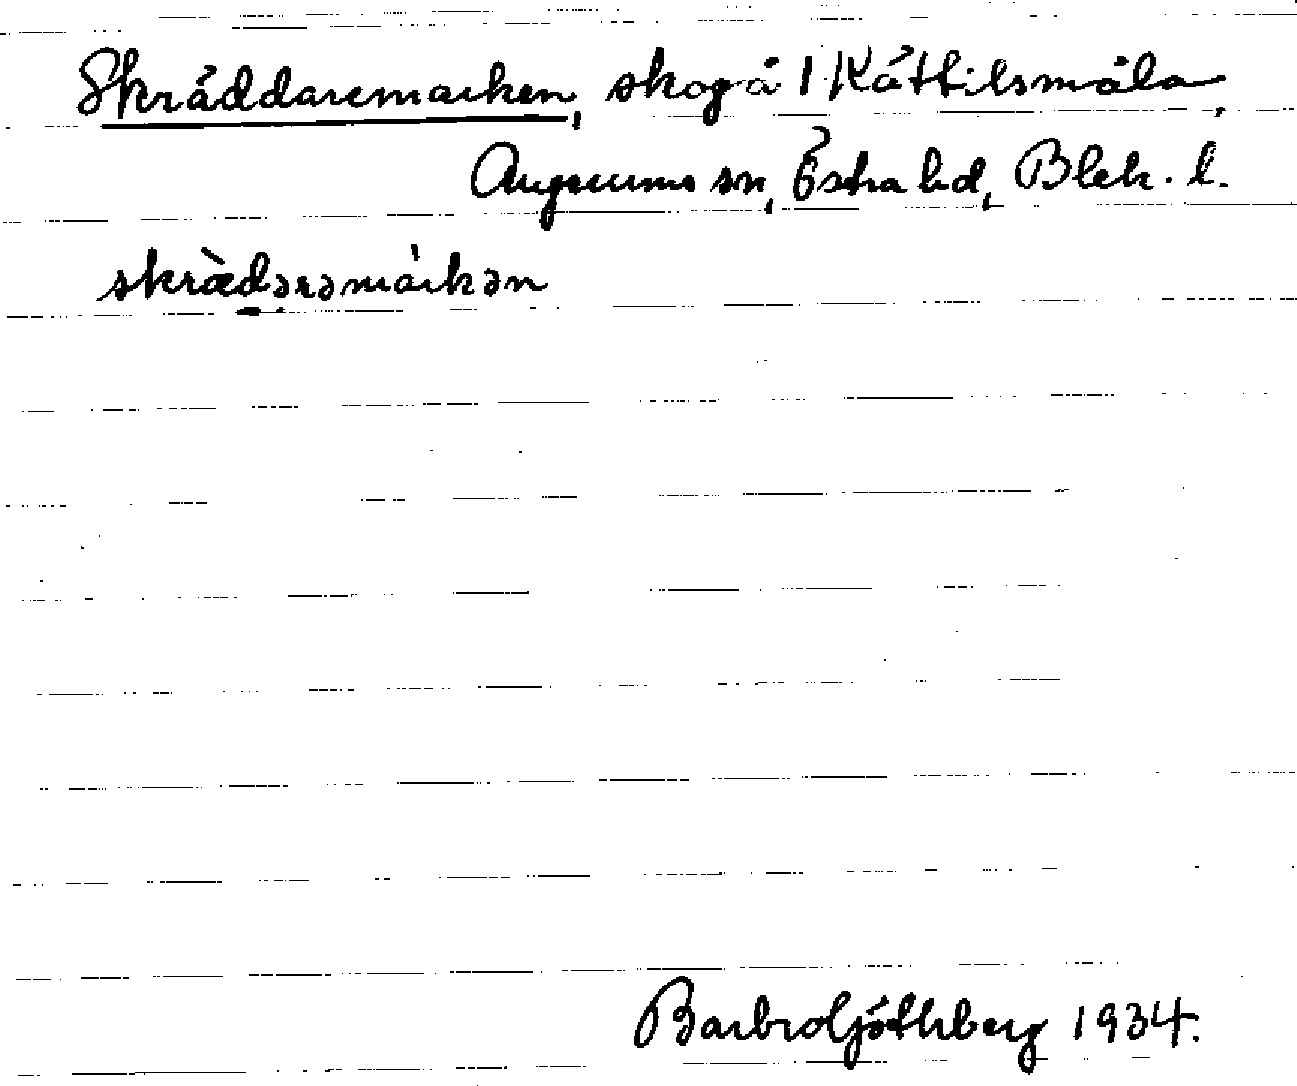 Skräddaremarken, skog å 1 Kättilsmåla,
Augerums sn, Östra hd, Blek. l.
skrædərəmárkən
Barbro Göthberg 1934.